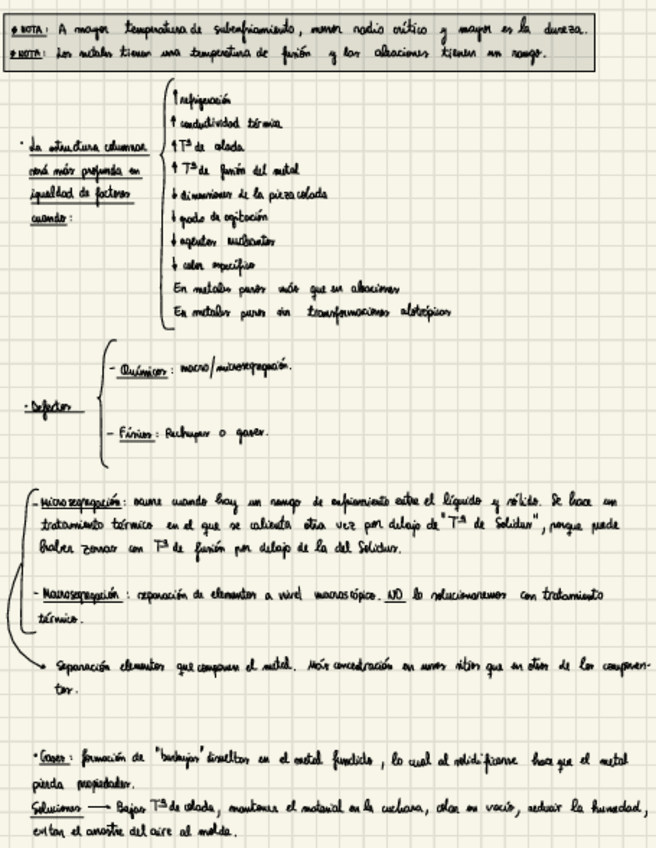 * NOTA: A mayor temperatura de subenfriamiento, menor radio crítico y mayor es la dureza.
* NOTA: Los metales tienen una temperatura de fusión y las aleaciones tienen un rango.
· La estructura columnar será más profunda en igualdad de factores cuando:
↑ refrigeración
↑ conductividad térmica
↑ Tª de colada
↑ Tª de fusión del metal
↓ dimensiones de la pieza colada
↓ grado de agitación
↓ agentes nucleantes
↓ calor específico
En metales puros más que en aleaciones
En metales puros sin transformaciones alotrópicas
· Defectos
- Químicos: macro/microsegregación.
- Físicos: Rechupes o gases.
- Microsegregación: ocurre cuando hay un rango de enfriamiento entre el líquido y sólido. Se hace un
tratamiento térmico en el que se calienta otra vez por debajo de "Tª de Solidus", porque puede
haber zonas con Tª de fusión por debajo de la del Solidus.
- Macrosegregación: separación de elementos a nivel macroscópico. NO lo solucionaremos con tratamiento
térmico.
Separación elementos que componen el metal. Más concentración en unos sitios que en otros de los componen-
tes.
· Gases: formación de "burbujas" disueltas en el metal fundido, lo cual al solidificarse hace que el metal
pierda propiedades.
Soluciones → Bajar Tª de colada, mantener el material en la cuchara, colar en vacío, reducir la humedad,
evitar el arrastre del aire al molde.